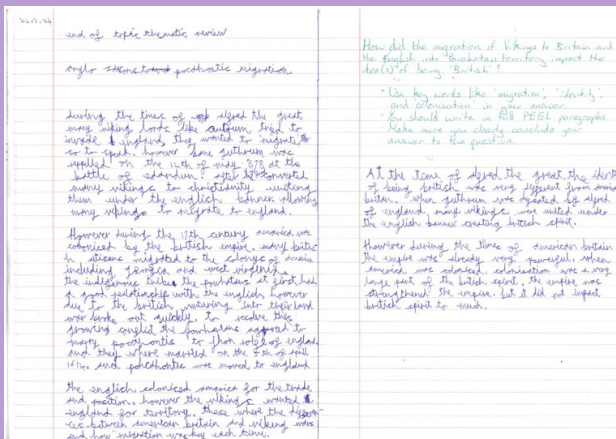 22.11.24
end of topic thematic review
anglo saxons pocohontic migration.
during the times of alfred the great
many viking lords like guthrum tried to
invade england, they wanted to migrate
so to speak. however some guthrum was
repelled on the 12th of may 878 at the
battle of edandun. after he converted
many vikings to christianity uniting
them under the english banner allowing
many vikings to migrate to england.
However during the 17th century america was
colonised by the british empire. many british
citizens migrated to the colonys of america
including georgia and west virginia.
the indigenous tribe the powhatans at first had
a good relationship with the english, however
due to the british into their land
war broke out quickly. to this
growing conflict the powhatans agreed to
marry pocohontis to jhon rolfe of england
and they where married on the 5th of april
1614. and pocohontis was moved to england
the english colonised america for the trade
and position. however the vikings wanted
england for territory. these where the
between american britain and viking
and how migration was key each time.
How did the migration of Vikings to Britain and
the English into Powhatan territory impact the
idea(s) of being 'British'?
- Use key words like 'migration', 'identity',
and colonisation' in your answer.
- You should write in full PEEL paragraphs.
- Make sure you clearly conclude your
answer to the question.
At the time of alfred the great the
of being british was very different from
britan. when guthrum was by alfred
of england, many vikings were united under
the english banner creating british spirit.
However during the times of american britain
the empire was already very powerful. when
america was colonised, colonisation was a very
large part of the british spirit. the empire was
strengthend the empire. but it did not impact
british spirit to much.